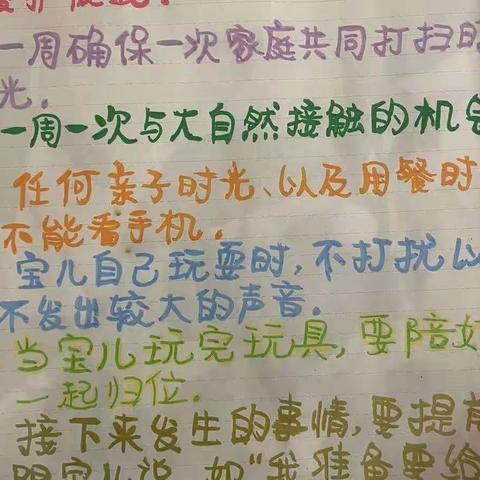 一周确保一次家庭共同打扫时
光.
一周一次与大自然接触的机会
任何亲子时光、以及用餐时
不能看手机.
宝儿自己玩耍时,不打扰以
不发出较大的声音.
当宝儿玩完玩具,要陪好
一起归位.
接下来发生的事情,要提前
跟宝儿说,如“我准备要给